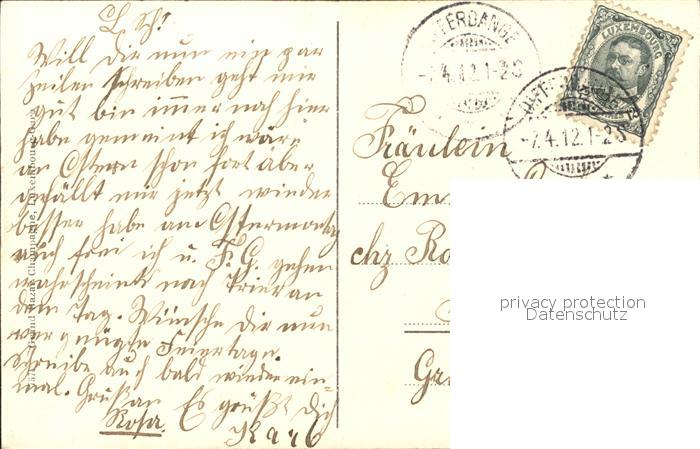 L. Sch!
Will Dir nun ein par
zeilen schreiben geht mir
gut bin immer noch hier
habe gemeint ich wäre
an Ostern schon fort aber
gefällt mir jetzt wieder
besser habe am Ostermontag
auch frei ich u. F. G. gehen
wahrscheint nach Trier an
dem Tag. Wünsche dir nun
vergnügte Feiertage.
schreibe auch bald wieder ein=
mal. Gruß an Es grüßt Dich
Rosa.
LUXEMBOURG
-7.4.12.1-2S
-7.4.12.1-2S
Fräulein
Em
chz Ro
Gr
privacy protection
Datenschutz